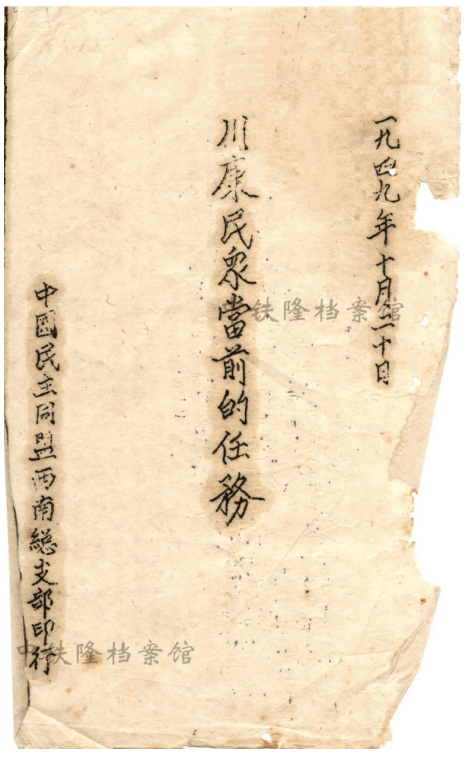 一九四九年十月二十日
川康民眾當前的任務
中國民主同盟西南總支部印行
铁隆档案馆
中铁隆档案馆